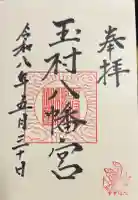 奉拝
玉村八幡宮
令和八年五月三十日